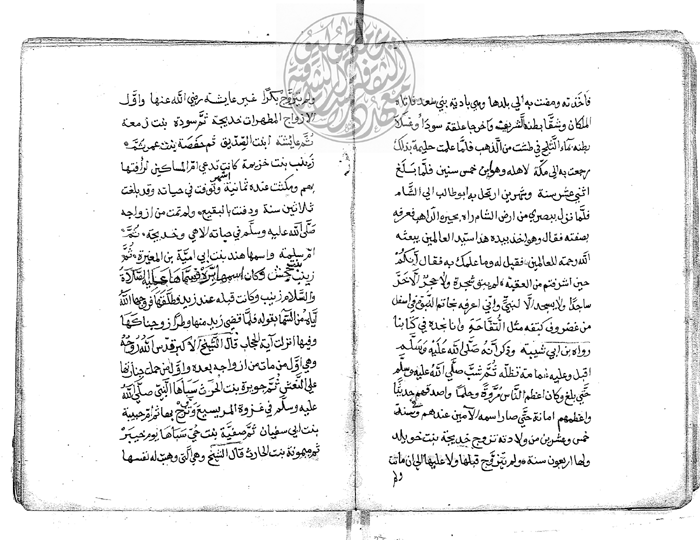 فاخذته ومضت به الى بلدها وهي بادية بني سعد فاتاه
الملكان وشقا بطنه الشريف واخرجا علقة سودا وغسلا
بطنه بماء الثلج في طشت من الذهب فلما علمت حليمة بذلك
رجعت به الى مكة لاهله وهو ابن خمس سنين فلما بلغ
اثني عشر سنة وشهرين ارتحل به ابو طالب الى الشام
فلما نزل ببصرى من ارض الشام راه بحيرة الراهب فعرفه
بصفته فقال وهو اخذ بيده هذا سيد العالمين يبعثه
الله رحمة للعالمين فقيل له وما علمك به فقال انكم
حين اشرفتم من العقبة لم يبق شجرة ولا حجر الا خر
ساجدا ولا يسجد الا لنبي واني اعرفه بخاتم النبوة في اسفل
من غضروف كتفه مثل التفاحة وانا نجده في كتابنا
رواه بن ابي شيبة وذكر انه صلى الله عليه وسلم
اقبل وعليه غمامة تظله ثم شب صلى الله عليه وسلم
حتى بلغ وكان اعظم الناس مروة وحلما واصدقهم حديثا
واعظمهم امانة حتى صار اسمه الامين عندهم وسنة
خمس وعشرين من ولادته تزوج خديجة بنت خويلد
ولها اربعون سنة ولم يتزوج قبلها ولا عليها الى ان ماتت
ولم
ولم يتزوج بكرا غير عايشة رضي الله عنها واول
الازواج المطهرات خديجة ثم سودة بنت زمعة
ثم عايشة ابنت الصديق ثم حفصة بنت عمر ثم
زينب بنت خزيمة كانت تدعى ام المساكين لرافتها
بهم ومكثت عنده ثمانية اشهر وتوفت في حياته وقد بلغت
ثلاثين سنة ودفنت بالبقيع ولم تمت من ازواجه
صلى الله عليه وسلم في حياته الا هي وخديجة ثم
ام سلمة واسمها هند بنت ابي امية بن المغيرة ثم
زينب بنت جحش وكان اسمها برة فسماها عليه الصلاة
والسلام زينب وكانت قبله عند زيد وطلقها فزوجها الله
اياه من السما بقوله فلما قضى زيد منها وطرا زوجناكها
وفيها انزلت اية الحجاب قال الشيخ الاكبر قدس الله روحه
وهي اول من مات من ازواجه بعده واول من حمل جنازتها
على النعش ثم جويرة بنت الحرث سباها النبي صلى الله
عليه وسلم في غزوة المريسيع وتزوج بها ثم رملة ام حبيبة
بنت ابي سفيان ثم صفية بنت حي سباها يوم خيبر
ثم ميمونة بنت الحارث قال الشيخ وهي التي وهبت له نفسها